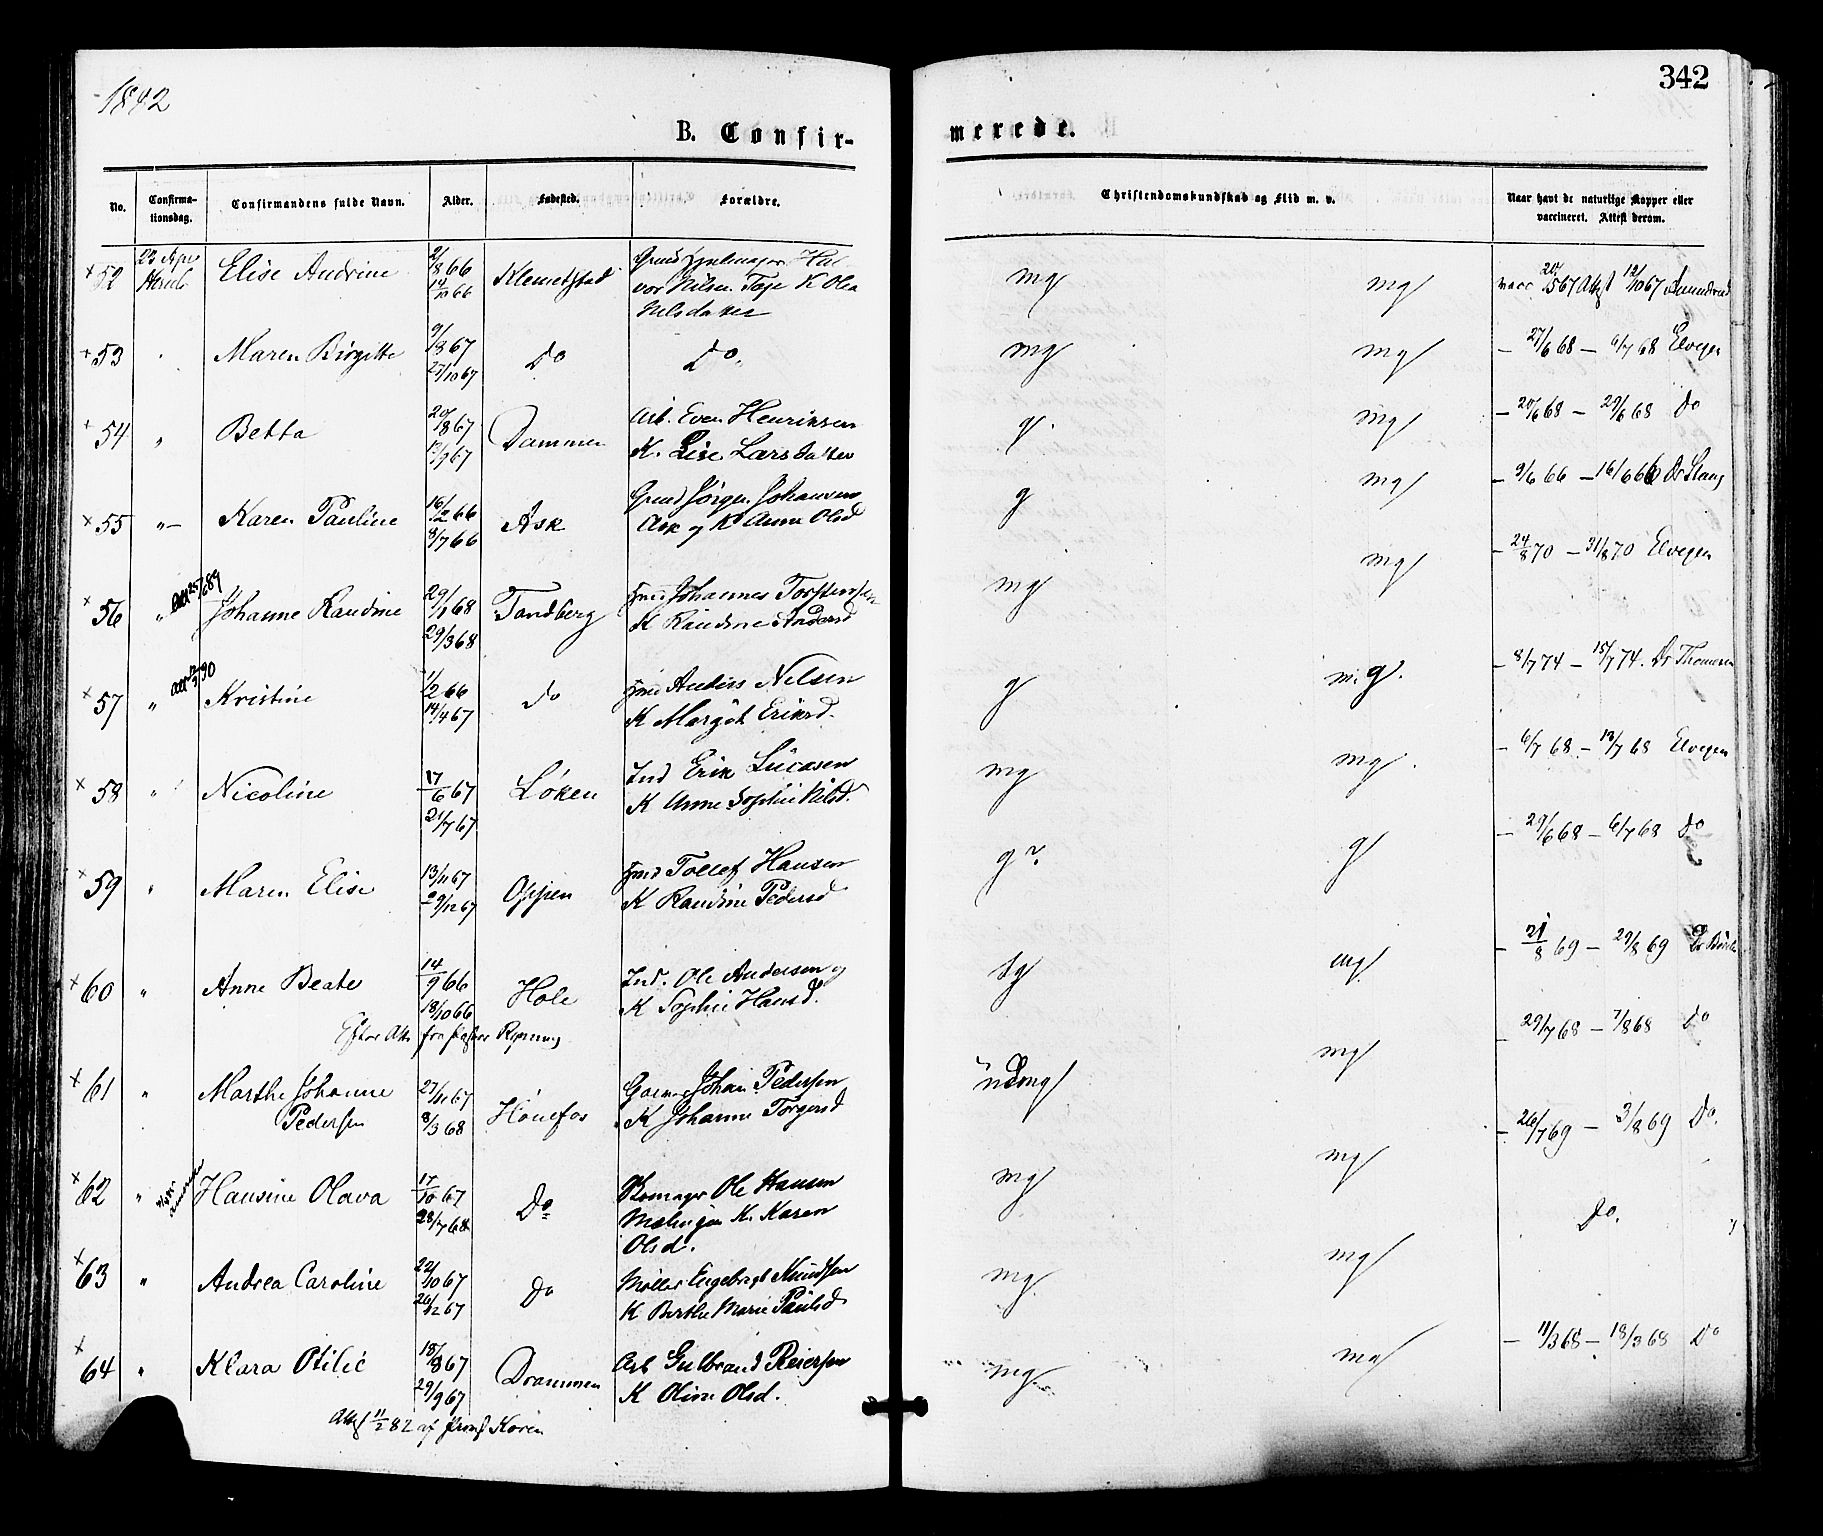 1882
342
B. Confir-
merede.
No.
Confirma-
tionsdag.
Confirmandens fulde Navn.
Alder.
Fødested.
Forældre.
Christendomskundskab og Flid m. v.
Naar havt de naturlige Kopper eller
vaccineret. Attest derom.
52 23 Apr Elise Andrine 2/8 66 14/10 66 Klemetstad
vor Nilsen K Olea
Nilsdatter
mg mg vacc 67 Att 12/10 67
53 Maren Birgitte 9/8 67 27/10 67 Do Do
mg mg – 27/6 68 – 6/7 68 Elvegen
54 " Betta 20/8 67 Dammen Arb. Even Henriksen
K. Lise Larsdatter
g. mg – 20/6 68 – 29/6 68 Do
55 " – Karen Pauline 16/2 66 8/7 66 Ask Grmd Jørgen Johansen
Ask og K Anne Olsd
g mg – 9/6 66 – 16/6 66 Dr Stang
56 " Johanne Randine 29/1 68 29/3 68 Tandberg Johannes Torstensen
K Randine Andersd
mg mg – 24/8 70 – 31/8 70 Elvegen
57 " Kristine 1/2 66 14/4 67 Do Anders Nilsen
K Margit Eriksd.
g m.g. – 8/7 74 – 15/7 74. Dr Thomesen
58 " Nicoline 17/6 67 21/7 67 Løken Ind Erik Lucasen
K Anne Sophie Nilsd.
mg mg – 6/7 68 – 13/7 68 Elvegen
59 " Maren Elise 13/11 67 29/12 67 Oppen Tollef Hansen
K Randine Pedersd
g g – 29/6 68 – 6/7 68 Do
60 " Anne Beate 14/9 66 18/10 66 Hole Ind. Ole Andersen og
K Sophie Hansd.
Efter Att fra
tg mg – 21/8 69 – 29/8 69
61 " Marthe Johanne
Pedersen 27/11 67 8/3 68 Hønefos Johan Pedersen
K Johanne Torgersd
mg 29/7 68 – 7/8 68 Do
62 " Hansine Olava 17/10 67 28/7 68 Do Ole Hansen
K. Karen
Olsd.
mg mg – 26/7 69 – 3/8 69 Do.
63 " Andrea Caroline 22/10 67 26/12 67 Do Møller Engebregt Knudsen
K Berthe Marie Paulsd
mg mg Do.
64 " Klara Otilie 18/8 67 29/9 67 Drammen Arb Gulbrand Reiersen
K Oline Olsd.
mg mg – 11/3 68 – 18/3 68 Do
Att 11/2 82 af Koren